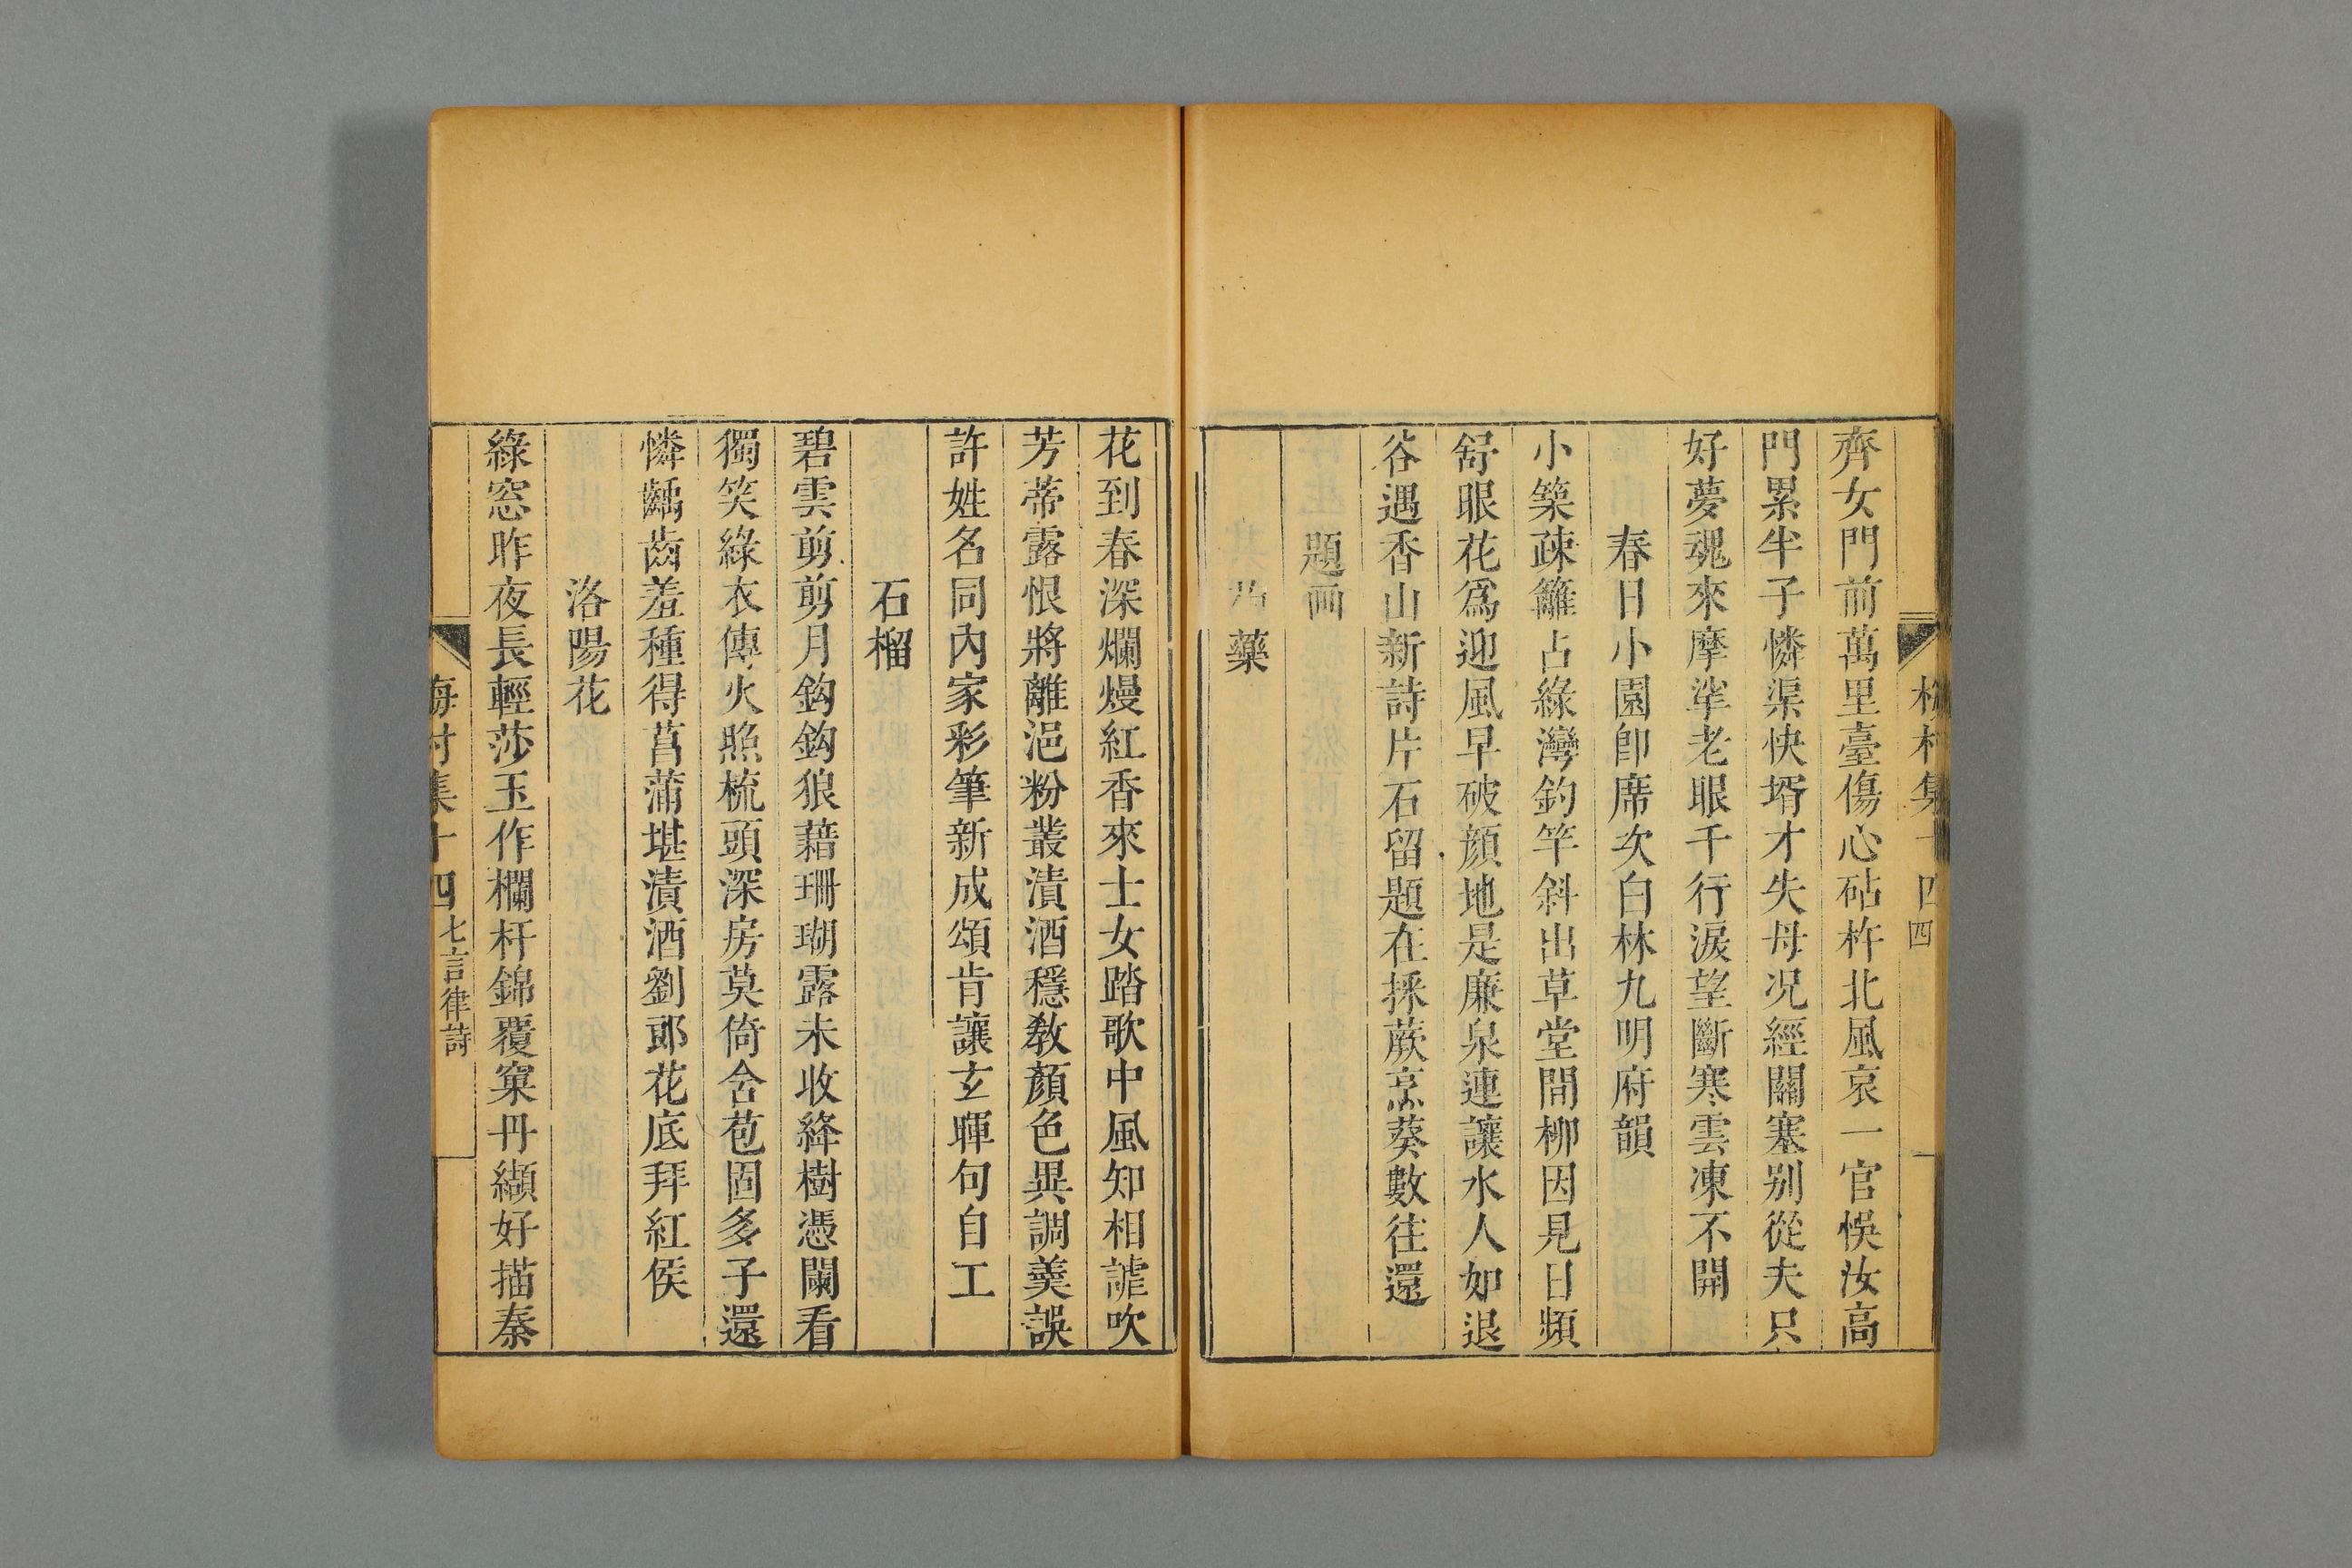 梅村集十四 四
齊女門前萬里臺傷心砧杵北風哀一官悞汝高
門累半子憐渠快壻才失母况經關塞别從夫只
好夢魂來摩挲老眼千行淚望斷寒雲凍不開
春日小園卽席次白林九明府韻
小築疎籬占綠灣釣竿斜出草堂間柳因見日頻
舒眼花爲迎風早破顏地是廉泉連讓水人如退
谷遇香山新詩片石留題在採蕨烹葵數往還
題画
芍藥
花到春深爛熳紅香來士女踏歌中風知相謔吹
芳蒂露恨將離浥粉叢漬酒穩教顏色異調羹誤
許姓名同內家彩筆新成頌肯讓玄暉句自工
石榴
碧雲剪剪月鈎鈎狼藉珊瑚露未收絳樹憑闌看
獨笑綠衣傳火照梳頭深房莫倚含苞固多子還
憐齲齒羞種得菖蒲堪漬酒劉郞花底拜紅侯
洛陽花
綠窓昨夜長輕莎玉作欄杆錦覆窠丹纈好描秦
梅村集十四 七言律詩